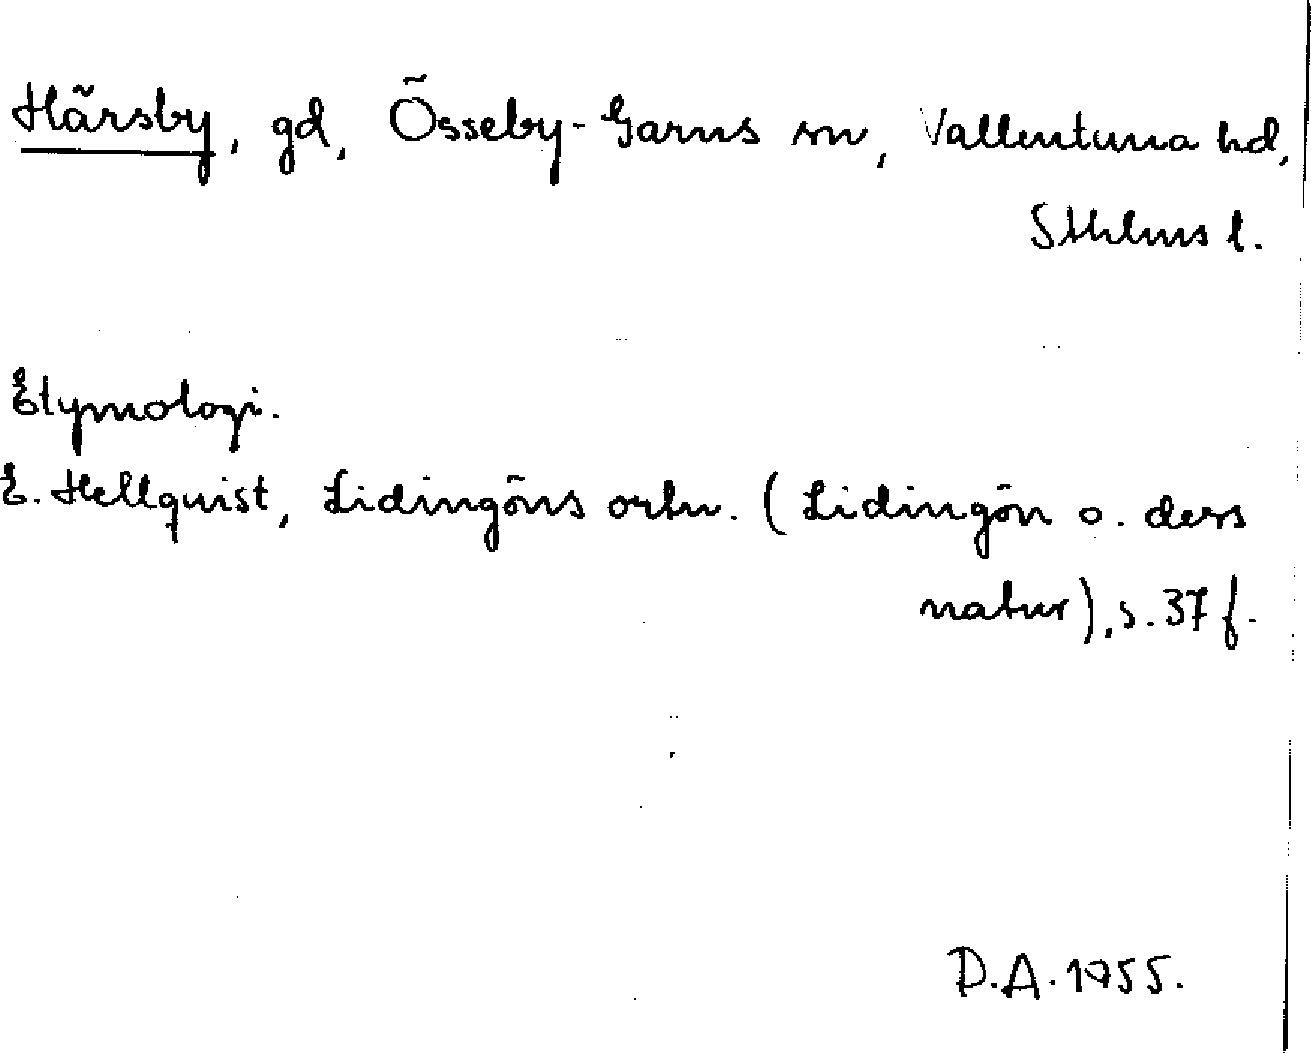 Härsby, gd, Össeby-Garns sn, Vallentuna hd,
Sthlms l.
Etymologi.
E. Hellquist, Lidingöns ortn. (Lidingön o. dess
natur), s. 37 f.
D.A. 1955.